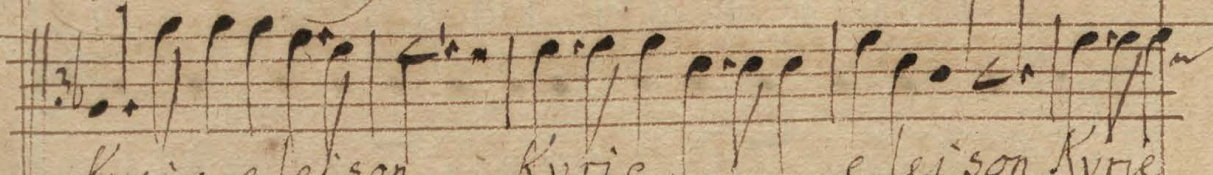 Kyrie eleison Kyrie eleison Kyrie